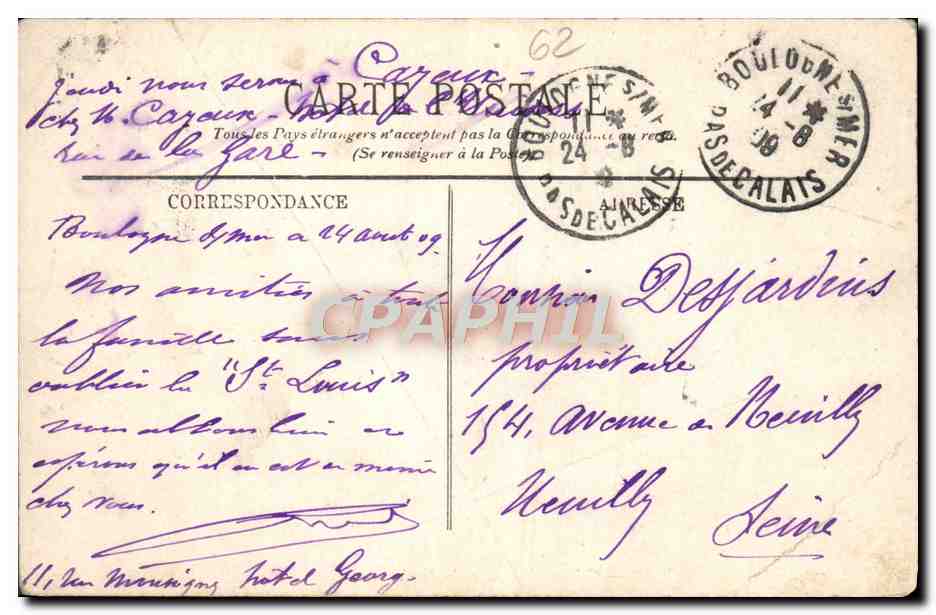 62
jeudi nous serons à Cazeux -
chez M. Cazeux -
rue de la Gare -
CARTE POSTALE
Tous les Pays étrangers n'acceptent pas la Correspondance au recto
(Se renseigner à la Poste)
BOULOGNE S/MER
11 *
24 - 8
09
PAS DE CALAIS
BOULOGNE S/MER
11 *
24 - 8
PAS DE CALAIS
CORRESPONDANCE
ADRESSE
Boulogne s/mer le 24 aout 09
Nos amitiés à toute
la famille sans
oublier la "St Louis"
nous allons bien et
espérons qu'il en est de même
chez vous.
11, rue Monsigny hotel Georg.
Monsieur Desjardins
propriétaire
154, avenue de Neuilly
Neuilly
Seine
CPAPHIL